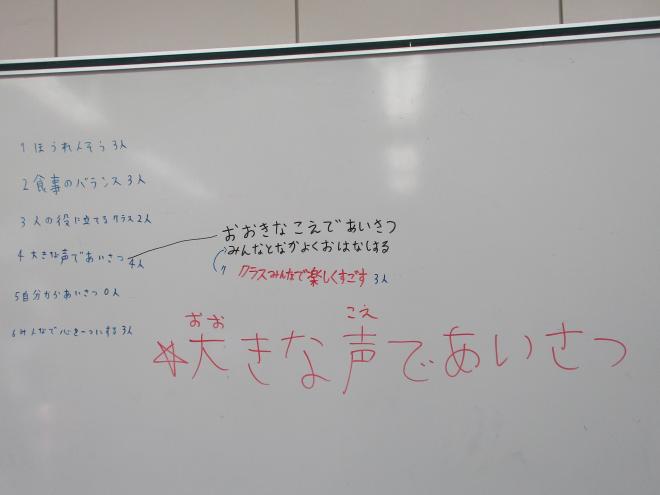 1 ほうれんそう 3人
2 食事のバランス 3人
3 人の役に立てるクラス 2人
4 大きな声であいさつ 4人
5 自分からあいさつ 0人
6 みんなで心を一つにする 3人
おおきなこえであいさつ
みんなとなかよくおはなしする
7 クラスみんなで楽しくすごす 3人
おお こえ
☆大きな声であいさつ